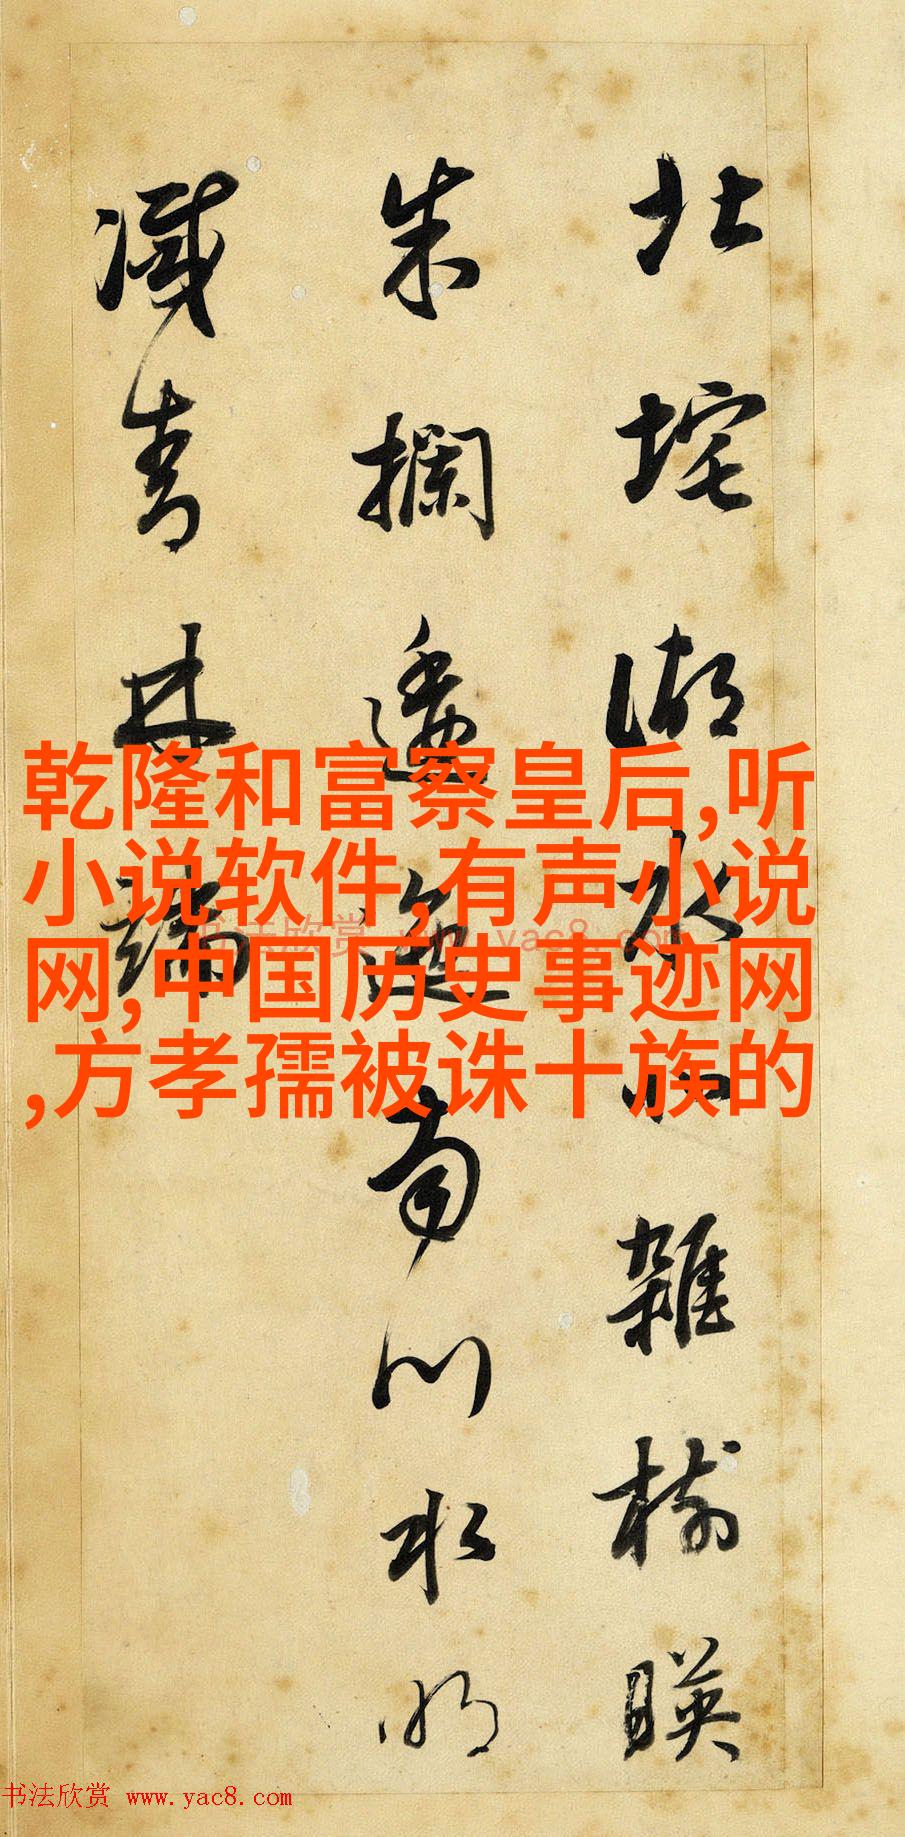 北垞湖水北雜樹暎
朱攔逶迤南川水明
滅青林端
乾隆和富察皇后,听
小说软件,有声小说
网,中国历史事迹网
,方孝孺被诛十族的
书法欣赏 www.yac8.com
书法欣赏 www.yac8.com